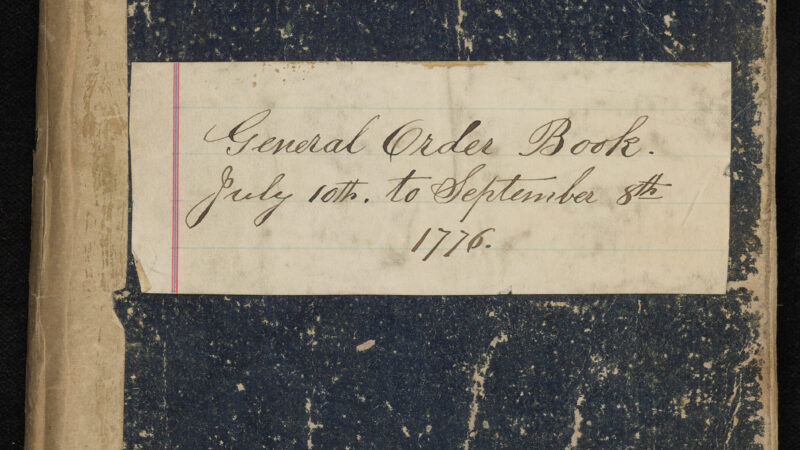 General Order Book.
July 10th. to September 8th
1776.